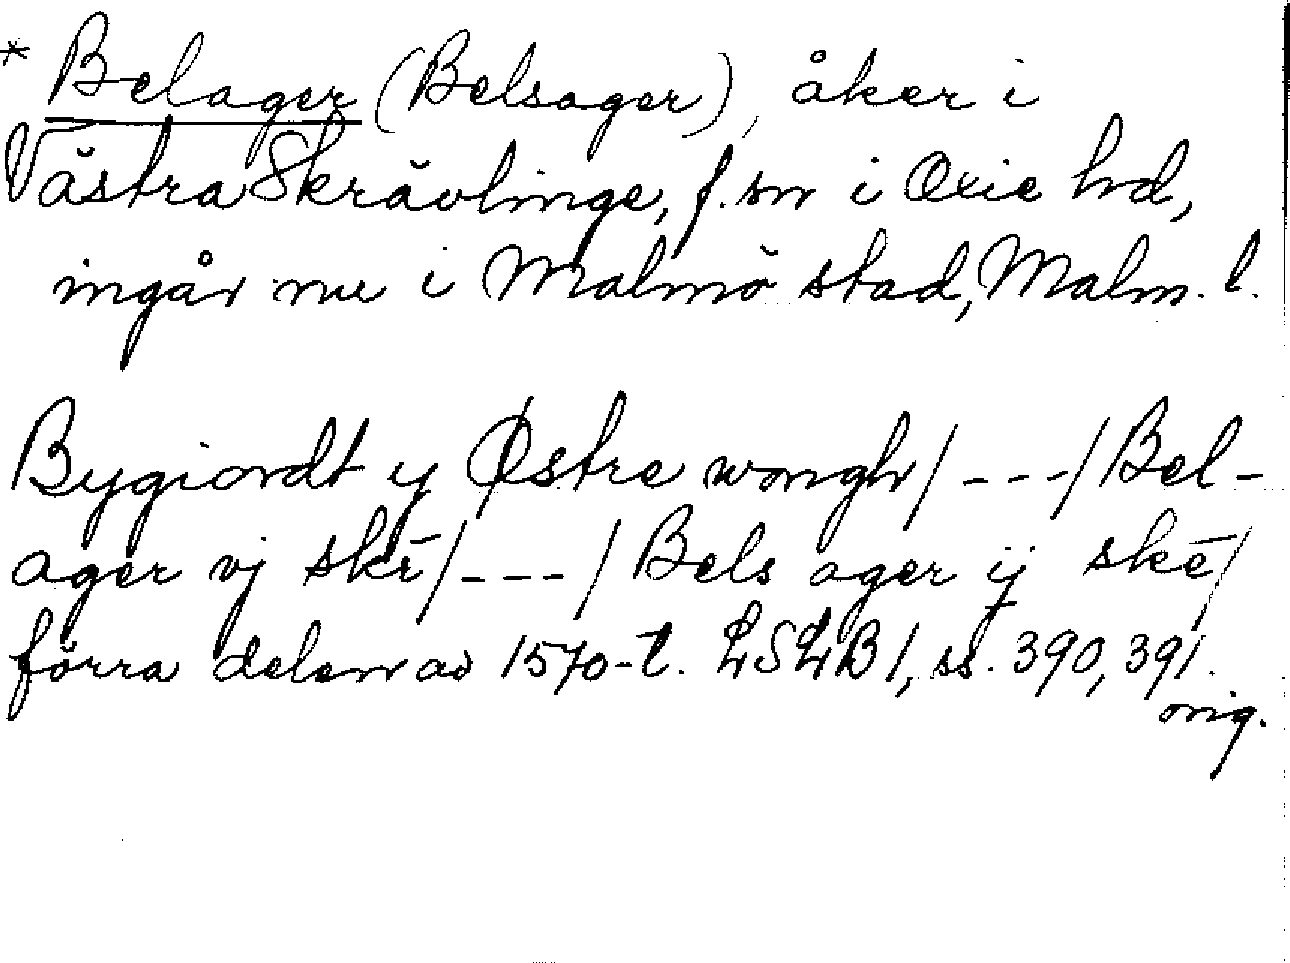 * Belager (Belsager), åker i
Västra Skrävlinge, f. sn i Oxie hd,
ingår nu i Malmö stad, Malm. l.
Bygiordt y Østre wongh/---/Bel-
ager vj skē/---/Bels ager ij skē/
förra delen av 1570-t. LSLB1, ss. 390, 391.
orig.